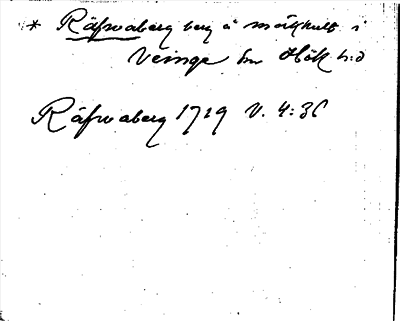 * Räfwaberg berg å Mörkhult i
Veinge sn Hök h:d
Räfwaberg 1719 V. 4:36